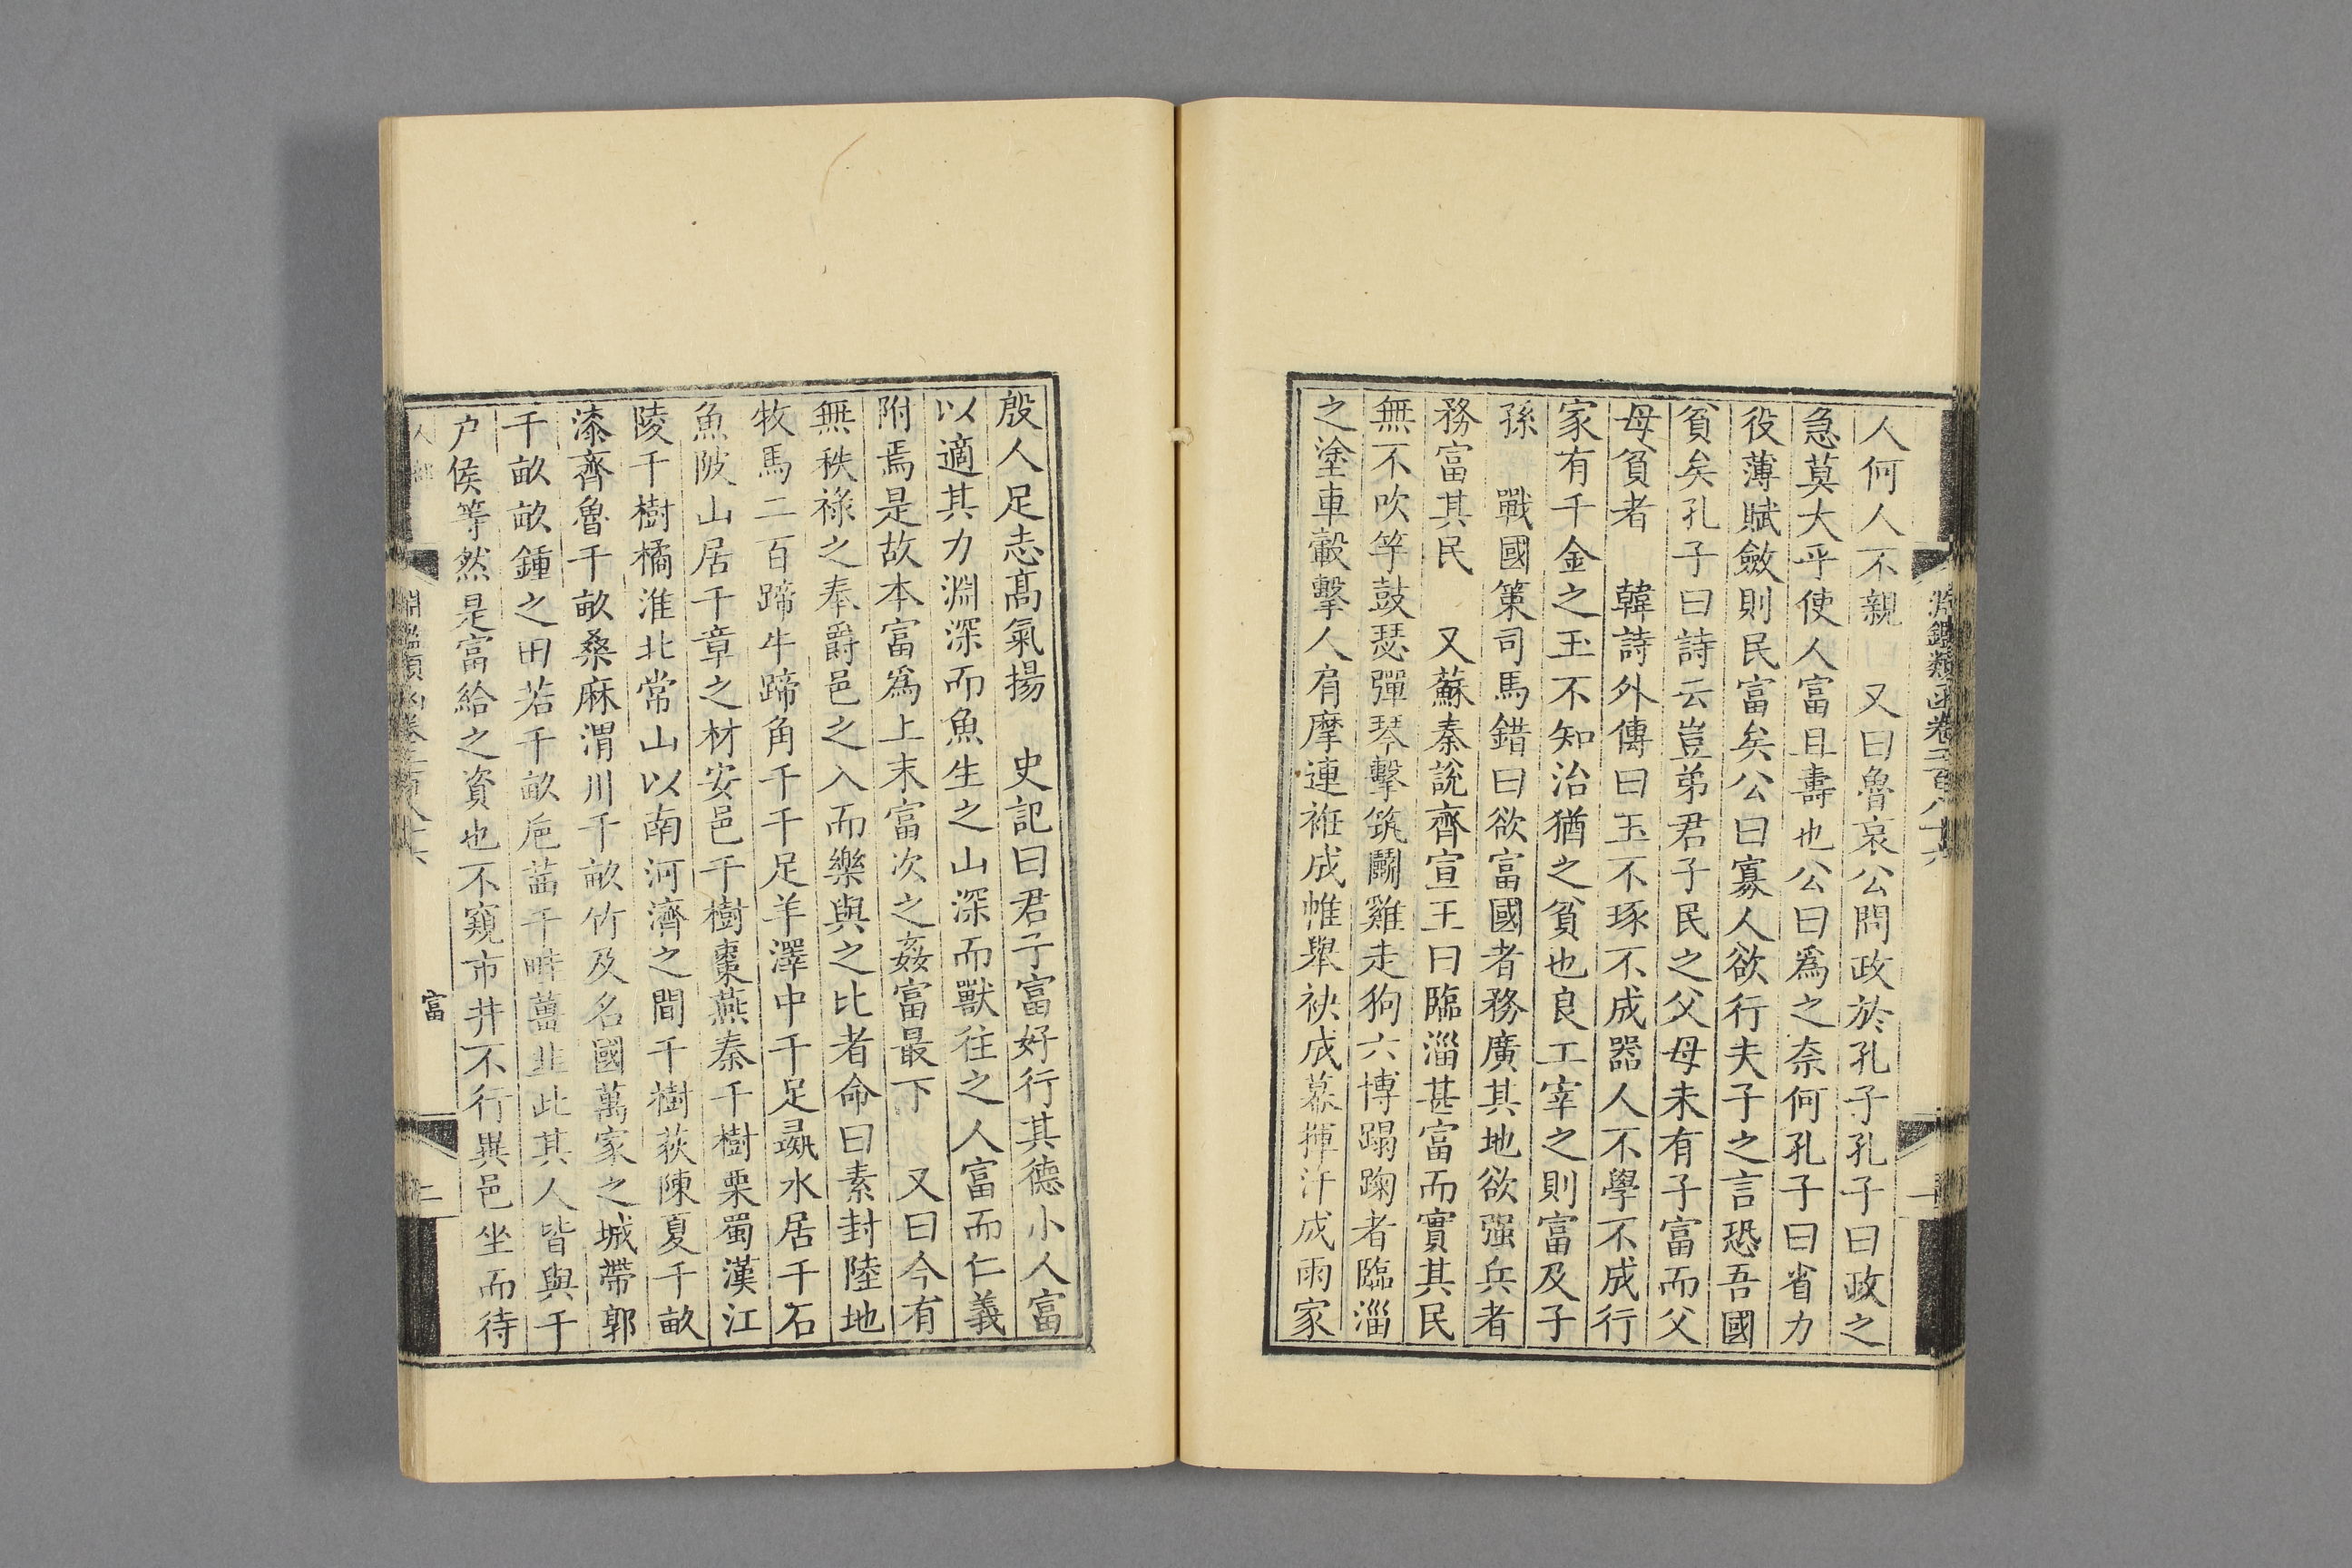 人何人不親　又曰魯哀公問政於孔子孔子曰政之
急莫大乎使人富且壽也公曰爲之奈何孔子曰省力
役薄賦斂則民富矣公曰寡人欲行夫子之言恐吾國
貧矣孔子曰詩云豈弟君子民之父母未有子富而父
母貧者　韓詩外傳曰玉不琢不成器人不學不成行
家有千金之玉不知治猶之貧也良工宰之則富及子
孫　戰國策司馬錯曰欲富國者務廣其地欲强兵者
務富其民　又蘇秦說齊宣王曰臨淄甚富而實其民
無不吹竽鼓瑟彈琴擊筑鬭雞走狗六博蹋踘者臨淄
之塗車轂擊人肩摩連衽成帷舉袂成幕揮汗成雨家
殷人足志髙氣揚　史記曰君子富好行其德小人富
以適其力淵深而魚生之山深而獸往之人富而仁義
附焉是故本富爲上末富次之姦富最下　又曰今有
無秩祿之奉爵邑之入而樂與之比者命曰素封陸地
牧馬二百蹄牛蹄角千千足羊澤中千足彘水居千石
魚陂山居千章之材安邑千樹棗燕秦千樹栗蜀漢江
陵千樹橘淮北常山以南河濟之間千樹荻陳夏千畝
漆齊魯千畝桑麻渭川千畝竹及名國萬家之城帶郭
千畝畝鍾之田若千畝巵茜千畦薑韭此其人皆與千
户侯等然是富給之資也不窺市井不行異邑坐而待
淵鑑類函卷三百八十六
富
二